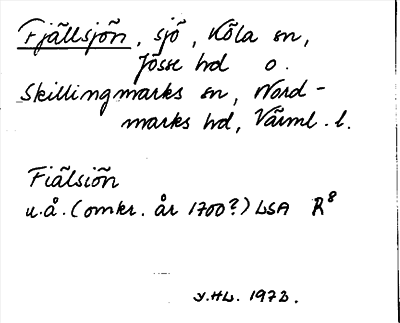 Fjällsjön, sjö, Köla sn,
Jösse hd o.
Skillingmarks sn, Nord-
marks hd, Värml. l.
Fiälsiön
u.å. (omkr. år 1700?) LSA R8
1972.